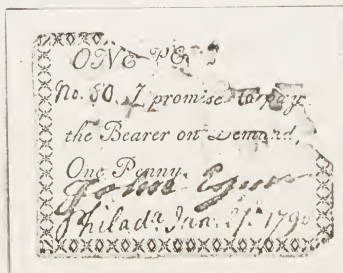 ONE PE
No. 80. I promise to pay
the Bearer on Demand,
One Penny.
John
Philada. Jan. 21st 1790